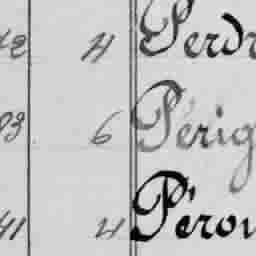 42 4 Perdr
93 6 Périg
41 4 Pérou